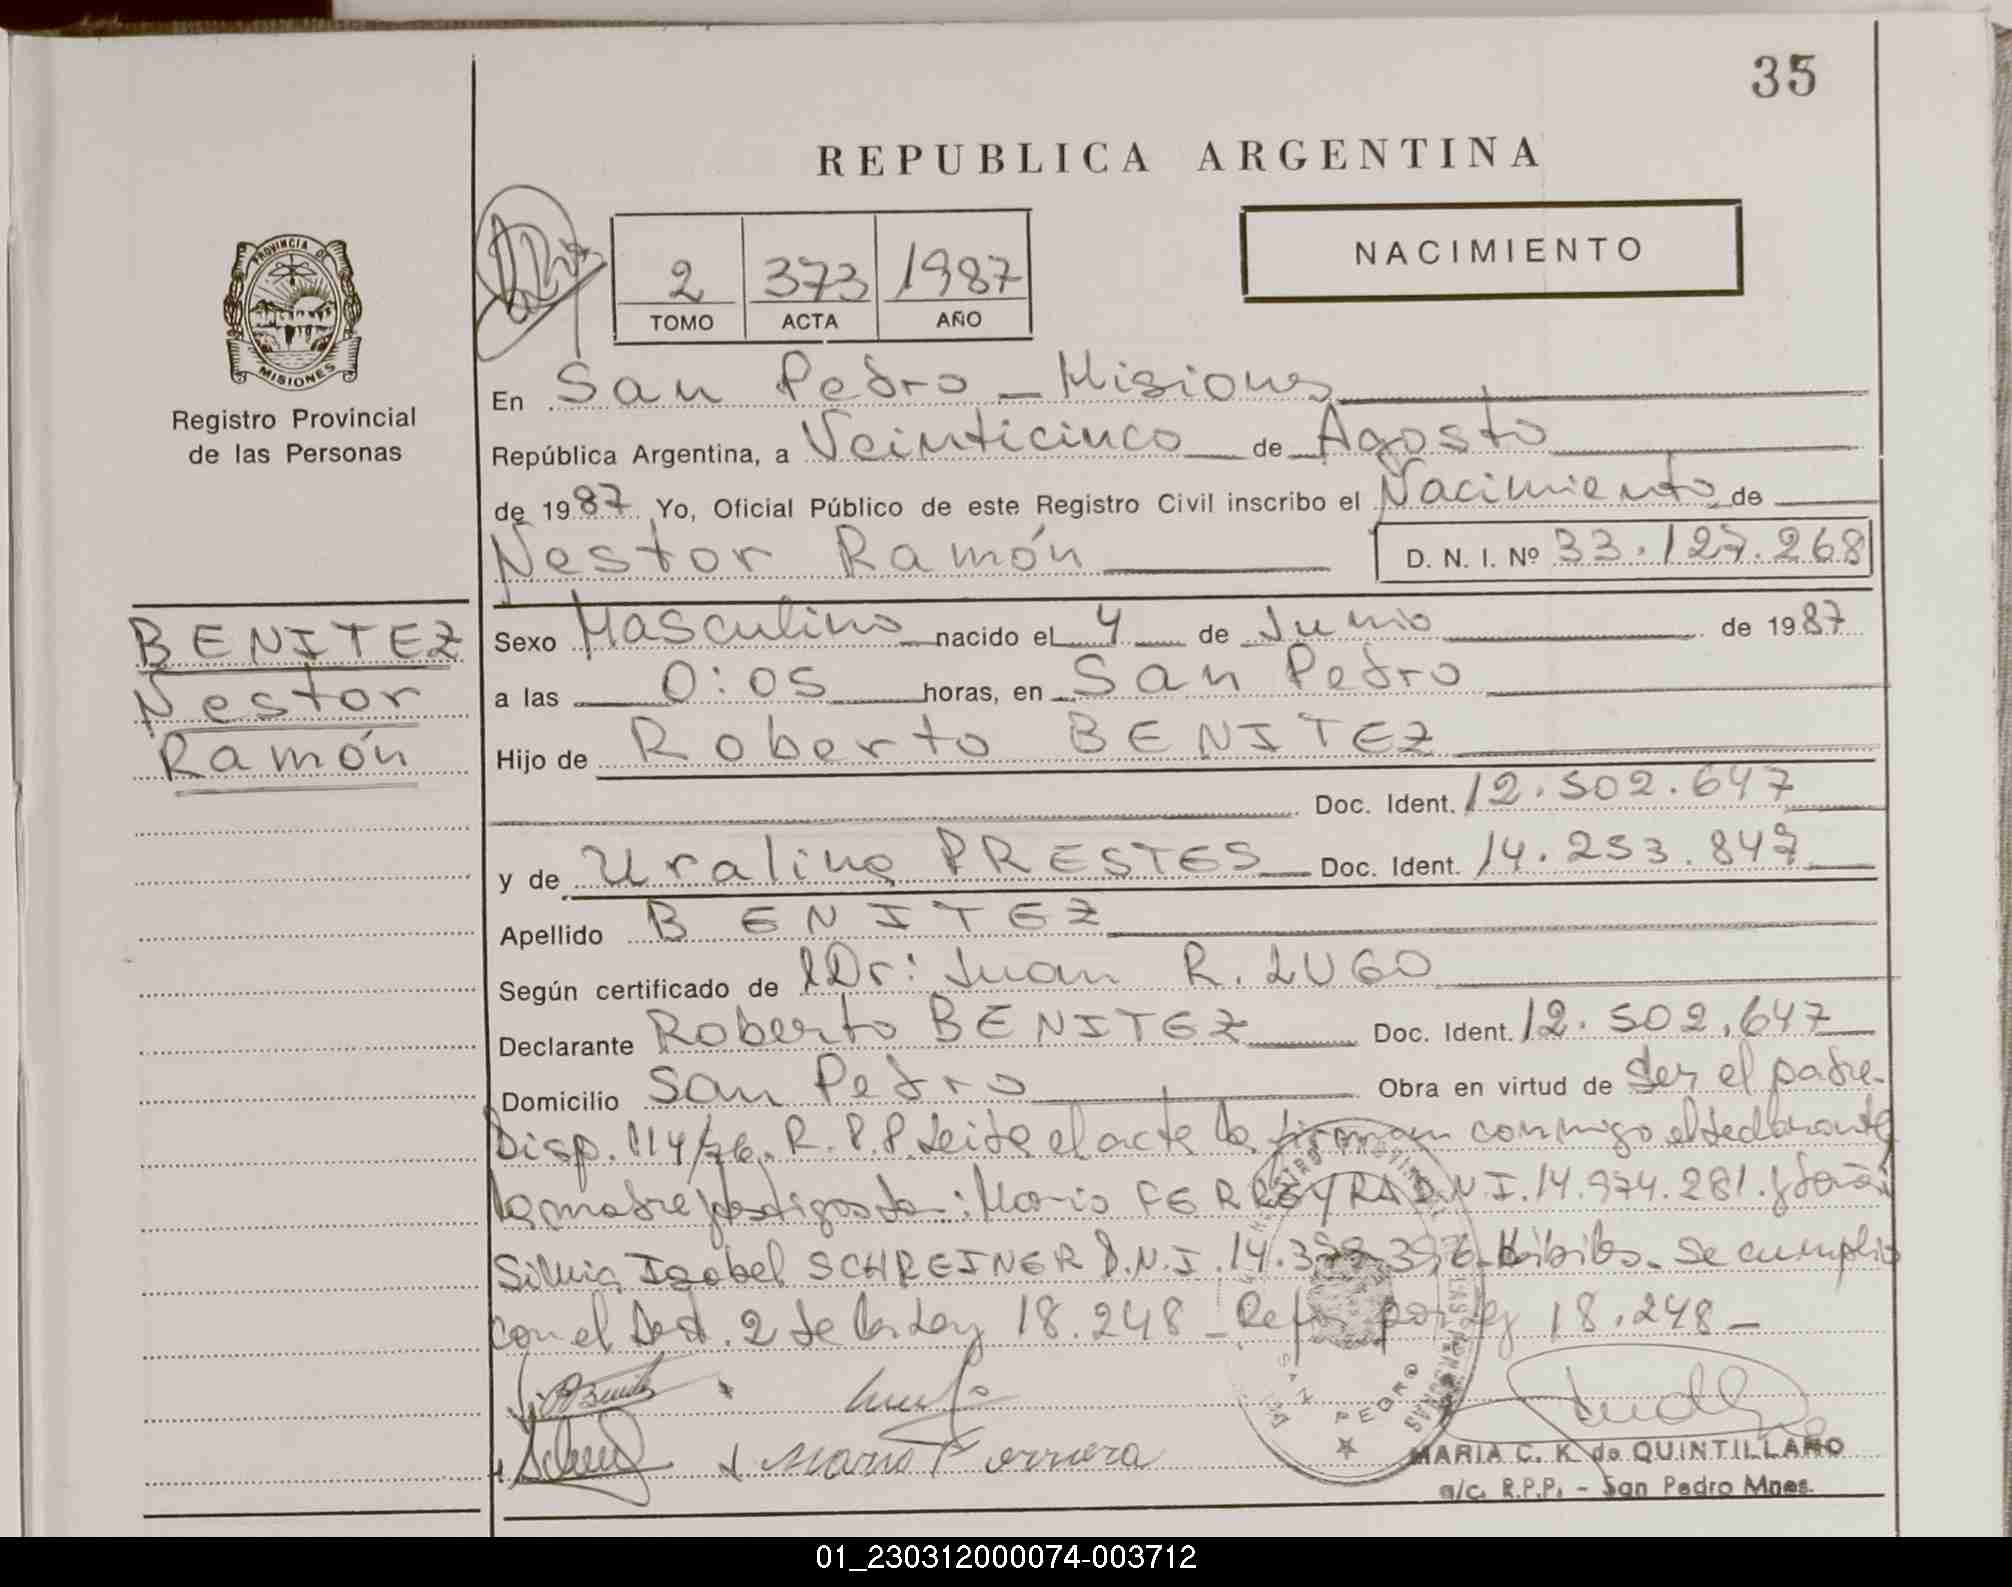 35
REPUBLICA ARGENTINA
NACIMIENTO
2 373 1987
TOMO ACTA AÑO
PROVINCIA DE
MISIONES
Registro Provincial
de las Personas
BENITEZ
Nestor
Ramón
En San Pedro - Misiones
República Argentina, a Veinticinco de Agosto
de 1987 Yo, Oficial Público de este Registro Civil inscribo el Nacimiento de
Nestor Ramón D. N. I. Nº 33.127.268
Sexo Masculino nacido el 4 de Junio de 1987
a las 0:05 horas, en San Pedro
Hijo de Roberto BENITEZ
Doc. Ident. 12.502.647
y de Uralina PRESTES Doc. Ident. 14.253.847
Apellido BENITEZ
Según certificado de Dr: Juan R. LUGO
Declarante Roberto BENITEZ Doc. Ident. 12.502.647
Domicilio San Pedro Obra en virtud de ser el padre-
Disp. 114/76. R.P.P. Leida el acta la firman conmigo el declarante
la madre y testigos de: Mario FERREYRA D.N.I. 14.974.281. y
Silvia Isabel SCHREINER D.N.I. 14. Hábiles. Se cumplio
con el Art. 2 de la Ley 18.248 - por Ley 18.248 -
Mario Ferreira
SAN PEDRO
MARIA C. K. de QUINTILLANO
a/c. R.P.P. - San Pedro Mnes.
01_230312000074-003712